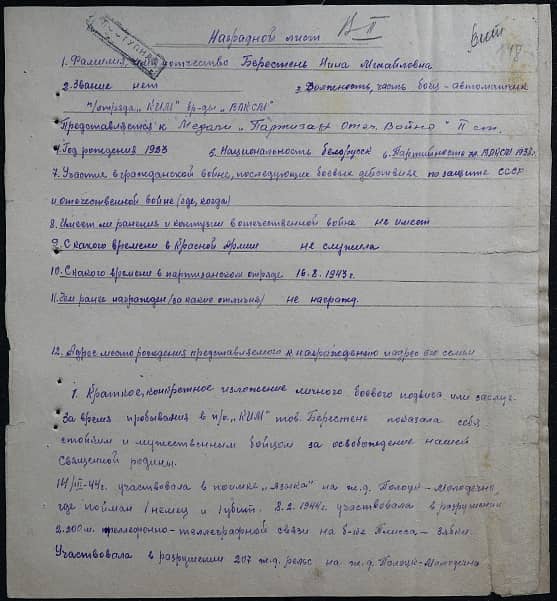 Наградной лист
В-II
148
1. Фамилия, имя отчество Берестень Нина Михайловна
2. Звание нет 3. Должность, часть боец-автоматчик
п/отряда „КИМ" бр-ды „ВЛКСМ"
Представляется к Медали „Партизан Отеч. Войны" II ст.
4. Год рождения 1923 5. Национальность белорусск 6. Партийность чл. ВЛКСМ 1938г.
7. Участие в гражданской войне, последующих боевых действиях по защите СССР
и отечественной войне (где, когда)
8. Имеет ли ранения и контузии в отечественной войне не имеет
9. С какого времени в Красной Армии не служила
10. С какого времени в партизанском отряде 16.8.1943г.
11. Чем ранее награжден (за какие отличия) не награжд.
12. Адрес место рождения представляемого к награждению и адрес его семьи
1. Краткое, конкретное изложение личного боевого подвига или заслуг.
За время пребывания в п/о. „КИМ" тов. Берестень показала себя
стойким и мужественным бойцом за освобождение нашей
священной родины.
14/III-44г. участвовала в поимке „языка" на ж.д. Полоцк-Молодечно,
где пойман 1 немец и 1 убит. 8.2.1944г. участвовала в разрушении
2.200м. телефонно-теллеграфной связи на б-ке Плисса - Зябки.
Участвовала в разрушении 207 ж.д. рельс на ж.д. Полоцк-Молодечно